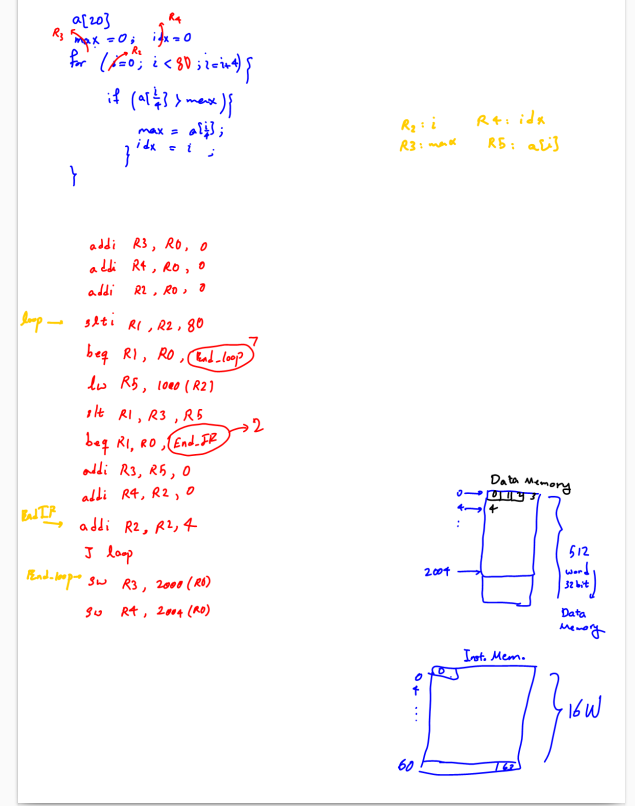 a[20]
R3 R4
max = 0; idx = 0
R2
for (i=0; i < 80; i=i+4){
if (a[i/4] > max){
max = a[i/4];
} idx = i ;
}
R2: i R4: idx
R3: max R5: a[i]
addi R3, R0, 0
addi R4, R0, 0
addi R2, R0, 0
loop → slti R1, R2, 80
beq R1, R0, End_loop 7
lw R5, 1000(R2)
slt R1, R3, R5
beq R1, R0, End_IF → 2
addi R3, R5, 0
addi R4, R2, 0
End IF → addi R2, R2, 4
J loop
End_loop → sw R3, 2000(R0)
sw R4, 2004(R0)
Data Memory
0 → 0 1 2 3
4 → 4
:
2004 →
512
word
32 bit
Data
Memory
Inst. Mem.
0 0
4
⋮
16W
60 63